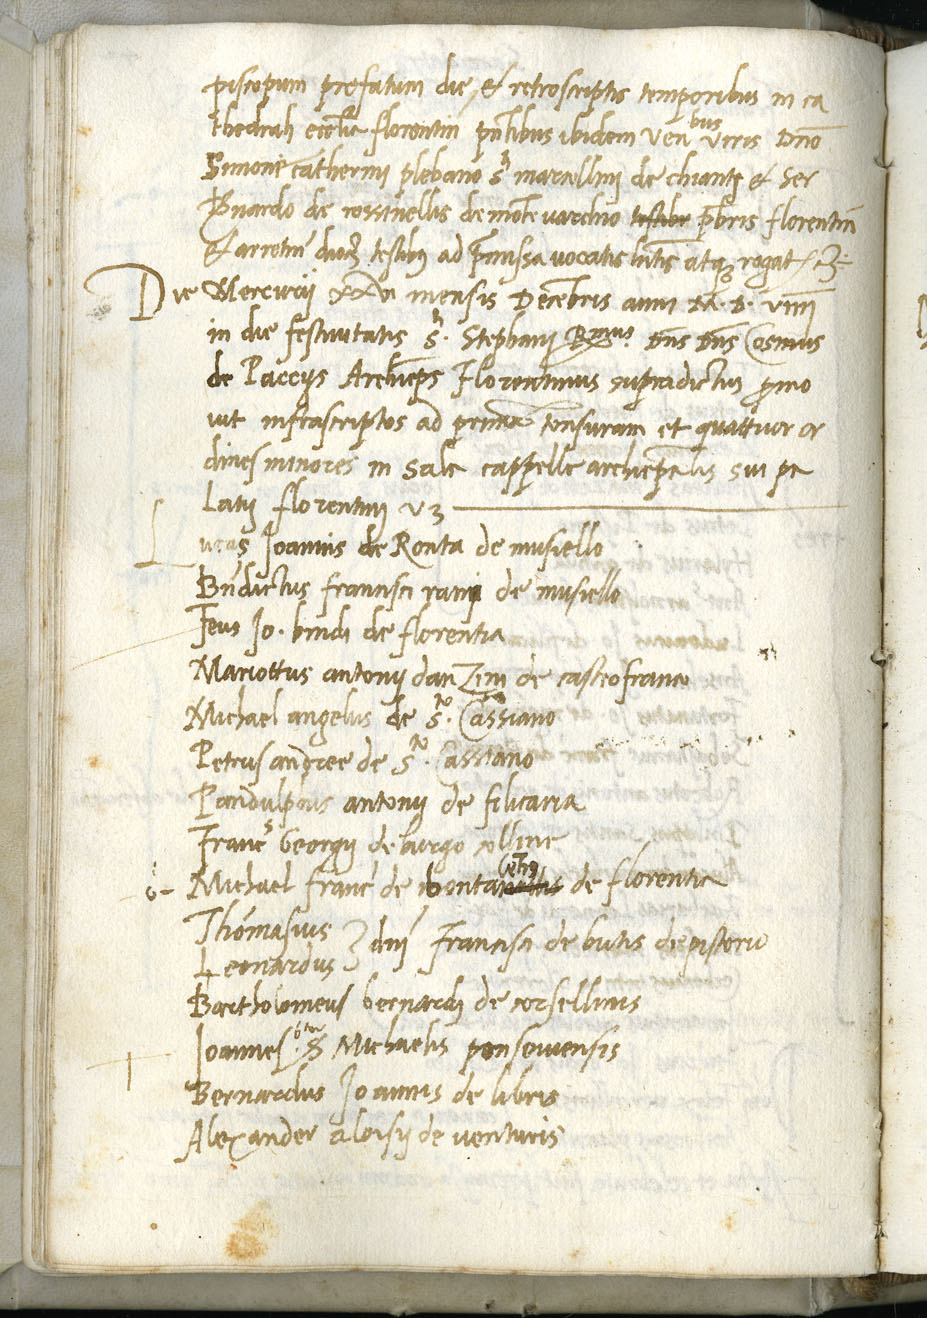 piscopum prefatum die & retroscriptis temporibus in ca
thedrali eccl̄ia florentin p̄ntibus ibidem Ven bus viris Dn̄o
Simone Catherini plebano S marcellini de chianti & Ser
Bn̄ardo de rossinellis de mōte varchio testibꝫ p̄bris florentin̄
& arretin̄ dioc testibꝫ ad p̄missa vocatis h̄itis atqꝫ rogat
Die Mercurii XXVI mensis Decēbris anni M. D. VIIII
in die festivitatis S. Stephani Dn̄s Dn̄s Cosmus
de Paccijs Archiep̄s Florentinus supradictus promo
vit infrascriptos ad primā tonsuram et quattuor or
dines minores in Sala cappelle archiep̄alis sui pa
Latij florentini vꝫ
Lucas Joannis de Ronta de musiello
Bn̄dictus francisci ranij de musiello
Feus Jo. bindi de florentia
Mariottus antonij danzini de castrofranco
Michael angelus de S.to Cassiano
Petrus andree de S.to Cassiano
Pandulphus antonij de filicaria
Francs Georgij de burgo colline
6 Michael franc de bonta de florentia
Thomasius
Leonardus } dn̄i Francisci de butis de pistorio
Bartholomeus bernardi de corsellinis
Joannes S Michaelis ponsevensis
Bernardus Joannis de libris
Alexander aloisij de venturis